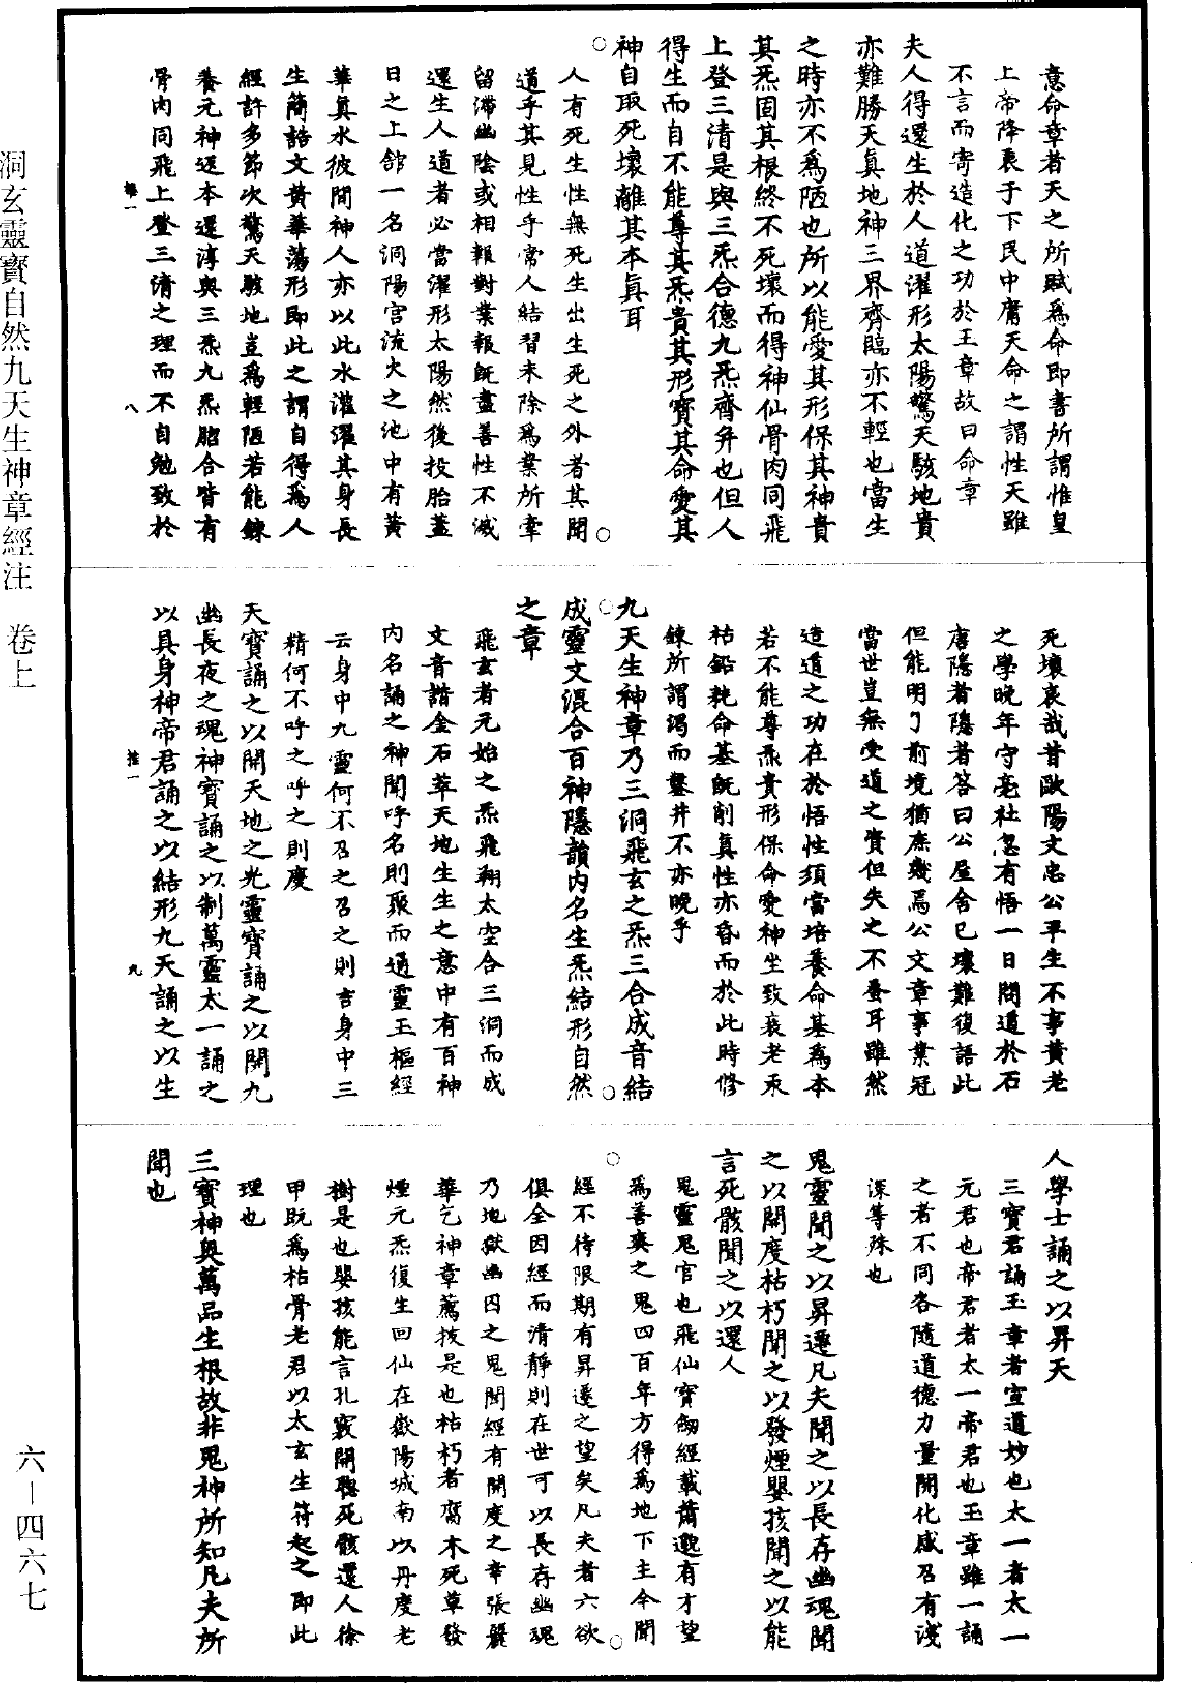 意命章者天之所賦爲命即書所謂惟皇
上帝降衷于下民中庸天命之謂性天雖
不言而寄造化之功於王章故曰命章
夫人得還生於人道濯形太陽驚天駭地貴
亦難勝天眞地神三界齊臨亦不輕也當生
之時亦不爲陋也所以能愛其形保其神貴
其炁固其根終不死壞而得神仙骨肉同飛
上登三清是與三炁合德九炁齊并也但人
得生而自不能尊其炁貴其形寶其命愛其
神自取死壞離其本眞耳
人有死生性無死生出生死之外者其聞
道乎其見性乎常人結習未除爲業所牽
留滯幽陰或相報對業報旣盡善性不滅
還生人道者必當濯形太陽然後投胎蓋
日之上館一名洞陽宮流火之池中有黃
華眞水彼間神人亦以此水灌濯其身長
生簡誥文黃華蕩形即此之謂自得爲人
經許多節次驚天駭地豈爲輕陋若能鍊
養元神返本還淳與三炁九炁脗合皆有
骨肉同飛上登三清之理而不自勉致於
死壞哀哉昔歐陽文忠公平生不事黃老
之學晚年守亳社忽有悟一日問道於石
唐隱者隱者答曰公屋舍已壞難復語此
但能明了前境猶庶幾焉公文章事業冠
當世豈無受道之資但失之不蚤耳雖然
造道之功在於悟性須當培養命基爲本
若不能尊炁貴形保命愛神坐致衰老汞
枯鉛耗命基旣削眞性亦昏而於此時修
鍊所謂渴而鑿井不亦晚乎
九天生神章乃三洞飛玄之炁三合成音結
成靈文混合百神隱韻内名生炁結形自然
之章
飛玄者元始之炁飛翔太空合三洞而成
文音諧金石萃天地生生之意中有百神
内名誦之神聞呼名則聚而通靈玉樞經
云身中九靈何不召之召之則吉身中三
精何不呼之呼之則慶
天寶誦之以開天地之光靈寶誦之以開九
幽長夜之魂神寶誦之以制萬靈太一誦之
以具身神帝君誦之以結形九天誦之以生
人學士誦之以昇天
三寶君誦玉章者宣道妙也太一者太一
元君也帝君者太一帝君也玉章雖一誦
之若不同各隨道德力量開化感召有淺
深等殊也
鬼靈聞之以昇遷凡夫聞之以長存幽魂聞
之以開度枯朽聞之以發煙嬰孩聞之以能
言死骸聞之以還人
鬼靈鬼官也飛仙寶劒經載蕭邈有才望
爲善爽之鬼四百年方得爲地下主今聞
經不待限期有昇遷之望矣凡夫者六欲
俱全因經而清靜則在世可以長存幽魂
乃地獄幽囚之鬼聞經有開度之幸張麗
華乞神章薦拔是也枯朽者腐木死草發
煙元炁復生回仙在嶽陽城南以丹度老
樹是也嬰孩能言孔竅開聰死骸還人徐
甲旣爲枯骨老君以太玄生符起之即此
理也
三寶神奥萬品生根故非鬼神所知凡夫所
聞也
洞玄靈寶自然九天生神章經注 卷上
六—四六七